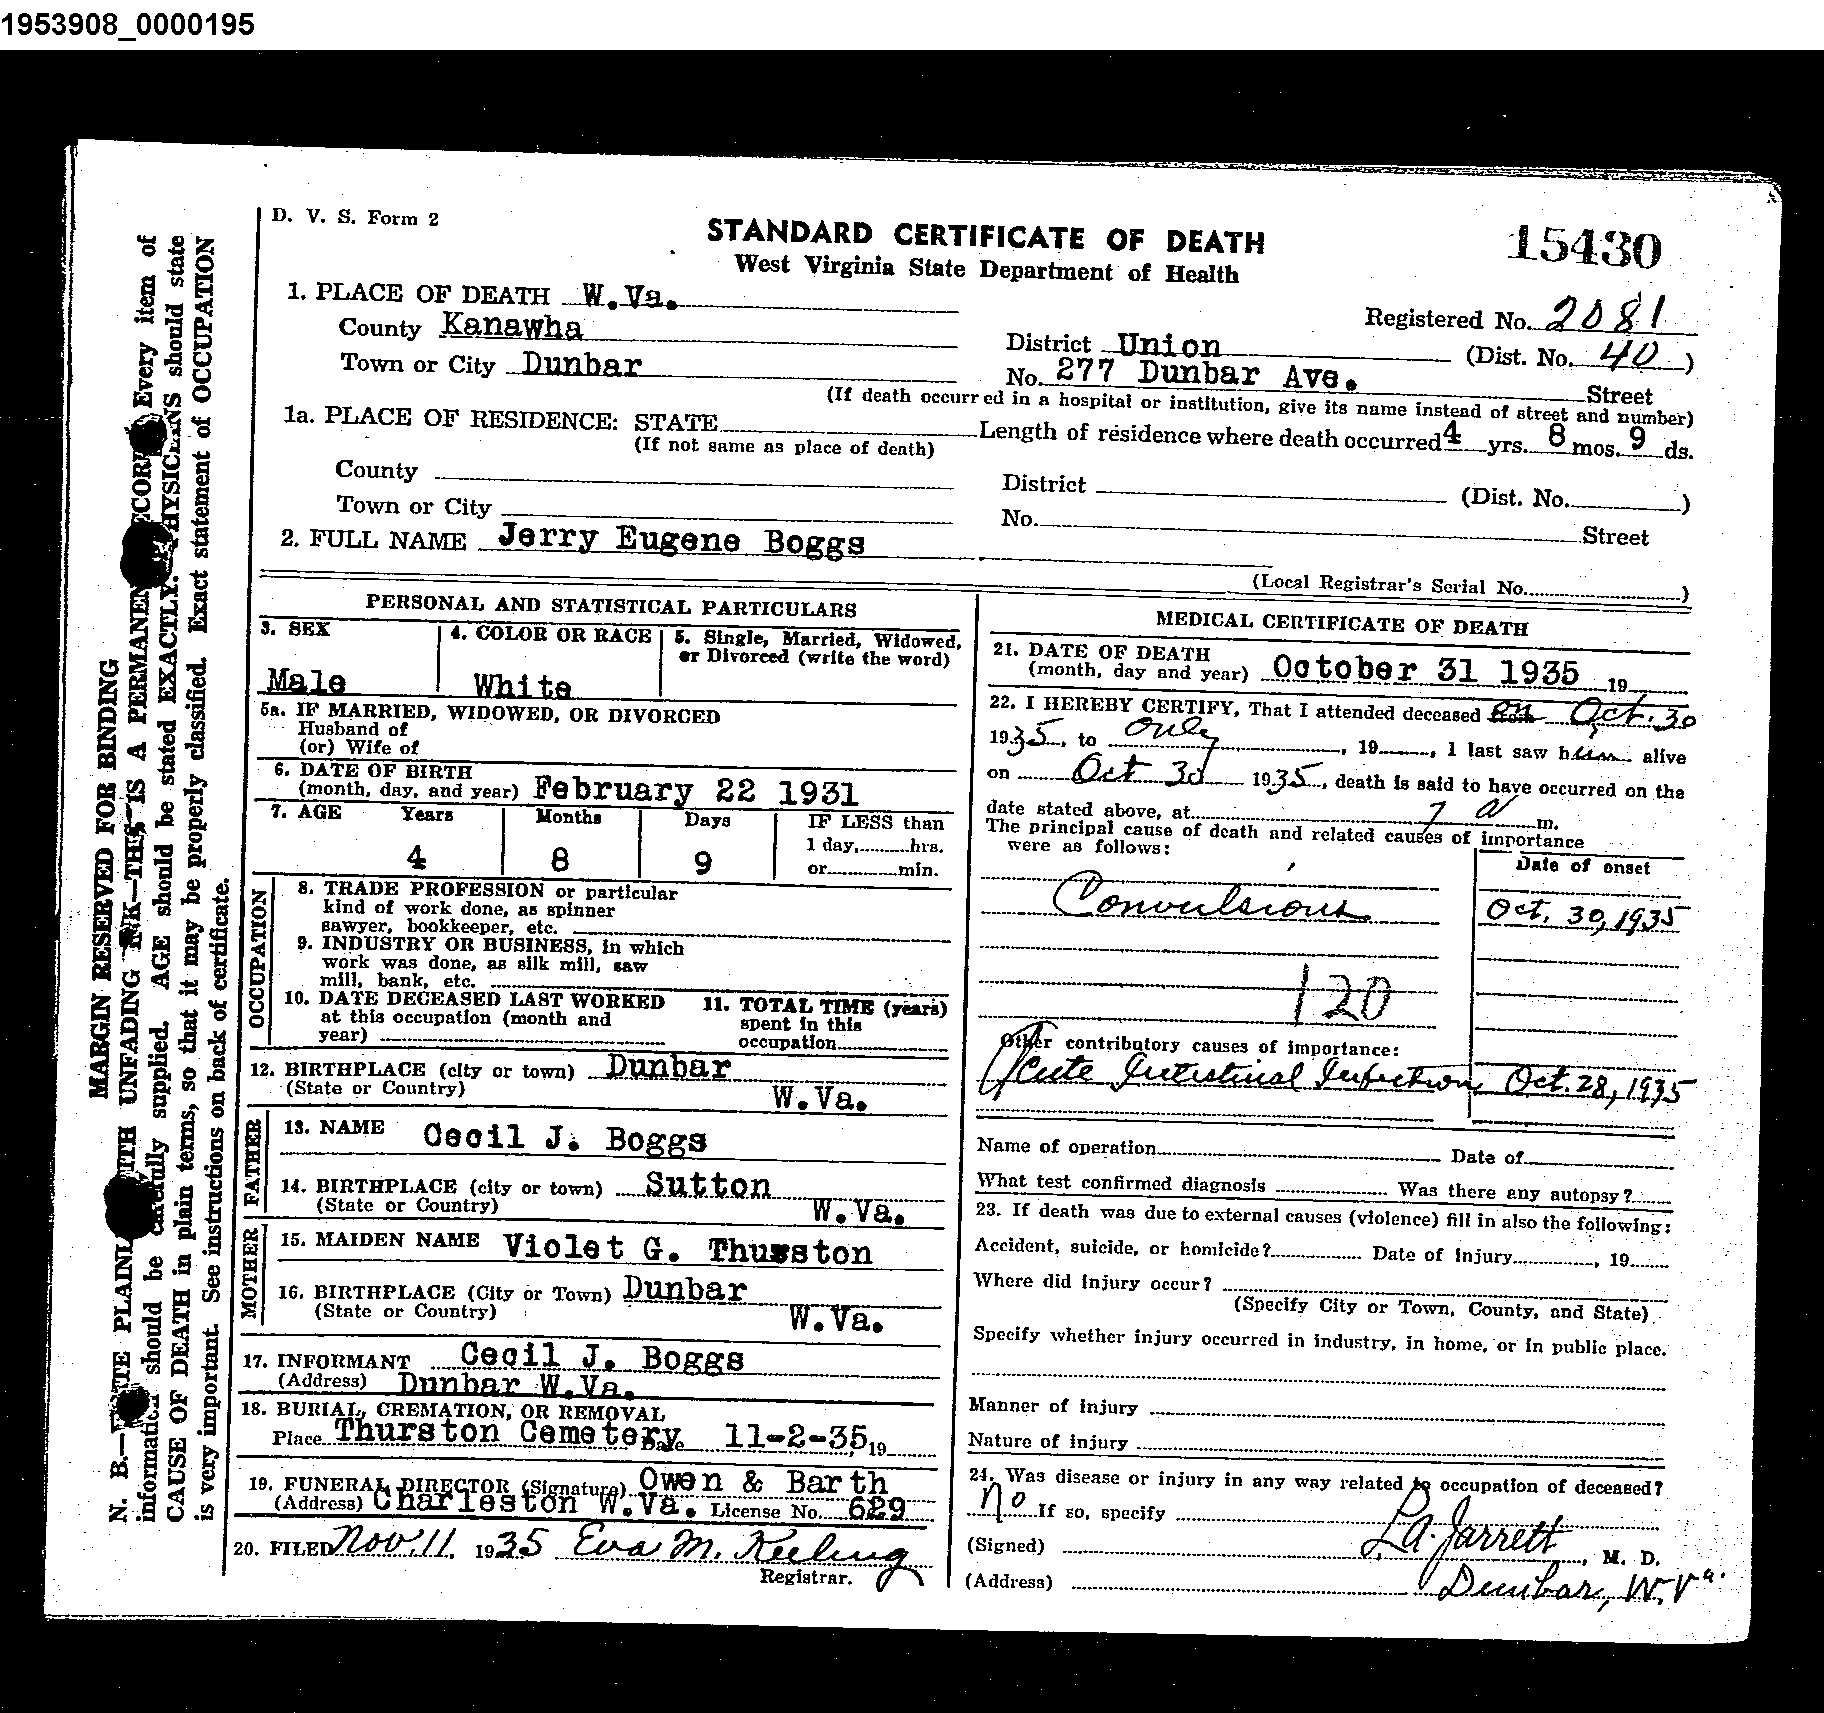 1953908_0000195
D. V. S. Form 2
STANDARD CERTIFICATE OF DEATH
15430
West Virginia State Department of Health
1. PLACE OF DEATH W.Va.
Registered No. 2081
County Kanawha
District Union (Dist. No. 40 )
Town or City Dunbar
No. 277 Dunbar Ave. Street
(If death occurred in a hospital or institution, give its name instead of street and number)
1a. PLACE OF RESIDENCE: STATE
Length of residence where death occurred 4 yrs. 8 mos. 9 ds.
(If not same as place of death)
County
District (Dist. No. )
Town or City
No. Street
2. FULL NAME Jerry Eugene Boggs
(Local Registrar's Serial No. )
PERSONAL AND STATISTICAL PARTICULARS
3. SEX
Male
4. COLOR OR RACE
White
5. Single, Married, Widowed,
or Divorced (write the word)
5a. IF MARRIED, WIDOWED, OR DIVORCED
Husband of
(or) Wife of
6. DATE OF BIRTH
(month, day, and year) February 22 1931
7. AGE Years Months Days IF LESS than
1 day, hrs.
4 8 9
or min.
OCCUPATION
8. TRADE PROFESSION or particular
kind of work done, as spinner
sawyer, bookkeeper, etc.
9. INDUSTRY OR BUSINESS, in which
work was done, as silk mill, saw
mill, bank, etc.
10. DATE DECEASED LAST WORKED
at this occupation (month and
year)
11. TOTAL TIME (years)
spent in this
occupation
12. BIRTHPLACE (city or town) Dunbar
(State or Country) W.Va.
FATHER
13. NAME Cecil J. Boggs
14. BIRTHPLACE (city or town) Sutton
(State or Country) W.Va.
MOTHER
15. MAIDEN NAME Violet G. Thurston
16. BIRTHPLACE (City or Town) Dunbar
(State or Country) W.Va.
17. INFORMANT Cecil J. Boggs
(Address) Dunbar W.Va.
18. BURIAL, CREMATION, OR REMOVAL
Place Thurston Cemetery Date 11-2-35 19
19. FUNERAL DIRECTOR (Signature) Owen & Barth
(Address) Charleston W.Va. License No. 629
20. FILED Nov. 11 1935 Eva M. Keeling
Registrar.
MEDICAL CERTIFICATE OF DEATH
21. DATE OF DEATH
(month, day and year) October 31 1935 19
22. I HEREBY CERTIFY, That I attended deceased on Oct. 30
1935, to only , 19 , I last saw him alive
on Oct 30 1935, death is said to have occurred on the
date stated above, at 7 a m.
The principal cause of death and related causes of importance
were as follows:
Date of onset
Convulsions Oct. 30, 1935
120
Other contributory causes of importance:
Acute Intestinal Infection Oct. 28, 1935
Name of operation Date of
What test confirmed diagnosis Was there any autopsy?
23. If death was due to external causes (violence) fill in also the following:
Accident, suicide, or homicide? Date of injury , 19
Where did injury occur?
(Specify City or Town, County, and State)
Specify whether injury occurred in industry, in home, or in public place.
Manner of injury
Nature of injury
24. Was disease or injury in any way related to occupation of deceased?
No If so, specify
(Signed) L.A. Jarrett, M. D.
(Address) Dunbar, W.Va.
MARGIN RESERVED FOR BINDING
N. B.—WRITE PLAINLY WITH UNFADING INK—THIS IS A PERMANENT RECORD. Every item of
information should be carefully supplied. AGE should be stated EXACTLY. PHYSICIANS should state
CAUSE OF DEATH in plain terms, so that it may be properly classified. Exact statement of OCCUPATION
is very important. See instructions on back of certificate.